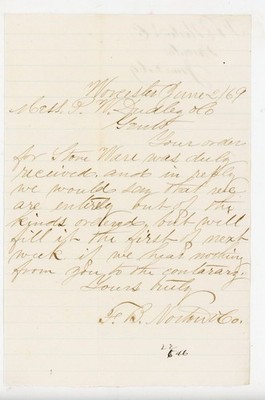 Worcester June 2/69
Mess. P. W. Dudley & Co
Gents,
Your order
for Stone Ware was duly
received and in reply
we would say that we
are entirely out of the
kinds ordered, but will
fill it the first of next
week if we hear nothing
from you to the contarary.
Yours truly
F. B. Norton & Co.